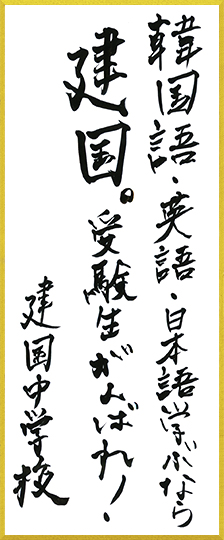 韓国語・英語・日本語学ぶなら
建国。受験生がんばれ！
建国中学校